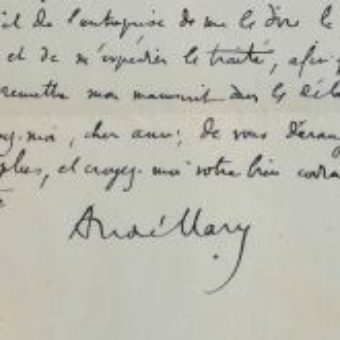 il de l'entreprise de me le dire le
et de m'expédier le traité, afin
remettre mon manuscrit dans le déla
ez-moi, cher ami, de vous déran
plus, et croyez-moi votre bien cordia
André Mary